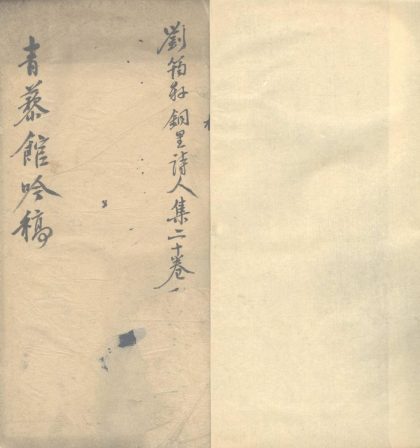 劉筠谷銅里詩人集二十卷
青藜館吟稿